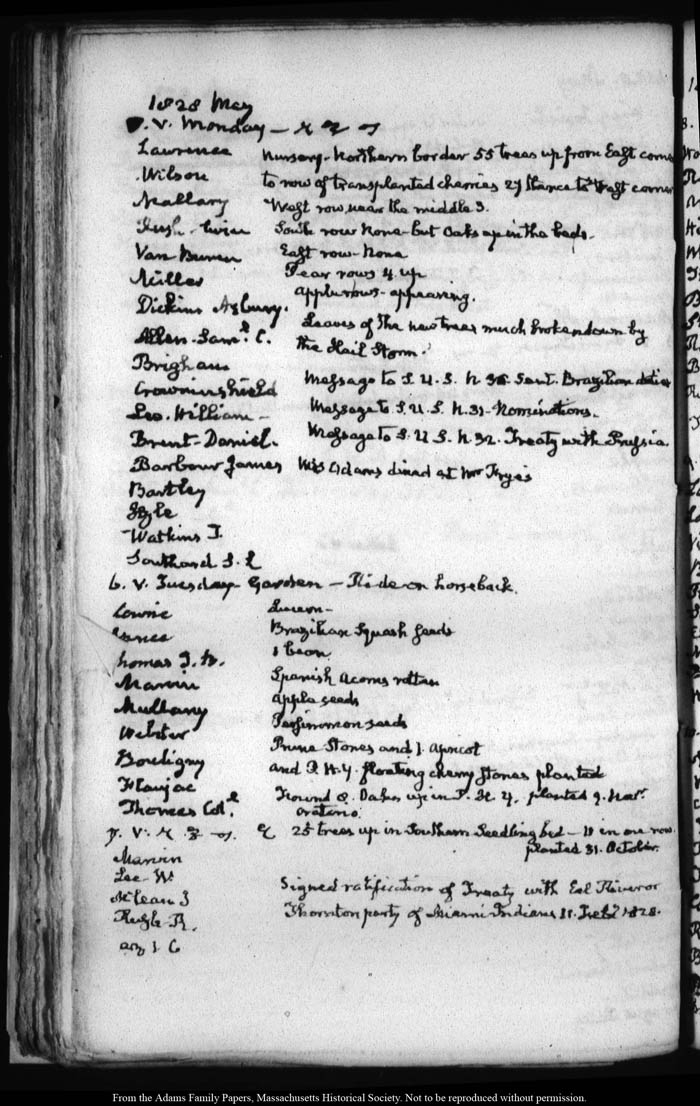 1828 May
5. V. Monday —
Lawrence Nursery. Northern border 55 trees up from East corner
Wilson to row of transplanted cherries 27 thence to West corner
Mallary West row near the middle 3.
Rush South row None but Oaks up in the beds.
Van Buren East row None
Miller Pear rows 4 up
Dickins Asbury. Apple rows appearing.
Allen Saml. C. Leaves of the new trees much broken down by
Brigham the Hail Storm.
Crowninshield Message to S. U. S. N. 30. Sent. Brazilian
Lee. William — Message to S. U. S. N. 31 Nominations.
Brent Daniel. Message to S. U. S. N. 32. Treaty with Prussia
Barbour James Mrs Adams dined at Mr Frye's
Bartley
Watkins T.
Southard S. L
6. V. Tuesday Garden — Ride on horseback.
Lowrie
Brazilian Squash Seeds
Thomas J. B. 1 bean
Marvin Spanish Acorns rotten
Mullany Apple seeds
Webster Persimmon seeds
Bouligny Prune Stones and 1. Apricot
Flaujac and P. H. 4. floating cherry stones planted
Thomas Col. Found 8. Oaks up in P. H. 4. planted 9. Novr.
7. V. 25 trees up in Southern Seedling bed — 11 in one row
Marvin planted 31. October.
Lee W
McLean J Signed ratification of Treaty with Eel River or
Rush R. Thornton party of Miami Indians 11. Feby 1828.
From the Adams Family Papers, Massachusetts Historical Society. Not to be reproduced without permission.